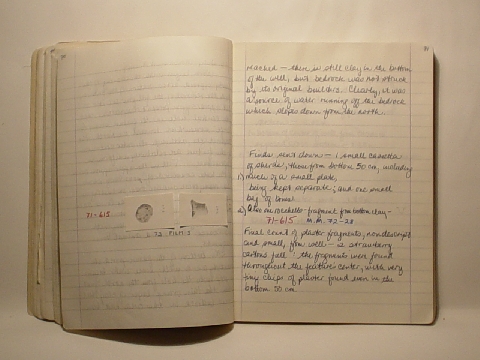 71-615
72 FILM-1
reached – there is still clay in the bottom
of the well, but bedrock was not struck
by its original builders. Clearly, it was
a source of water running off the bedrock
which slopes down from the north.
Finds sent down – 1 small cassetta
of sherds, those from bottom 50 cm, including
1) much of a small plate,
being kept separate; and one small
bag of bones
2) Also one rocchetto – fragment from bottom clay –
71-615 M.M. 72-28
Final count of plaster fragments, nondescript
and small, from well – 2 strawberry
cartons full. The fragments were found
throughout the feature center, with very
tiny chips of plaster found even in the
bottom 50 cm.